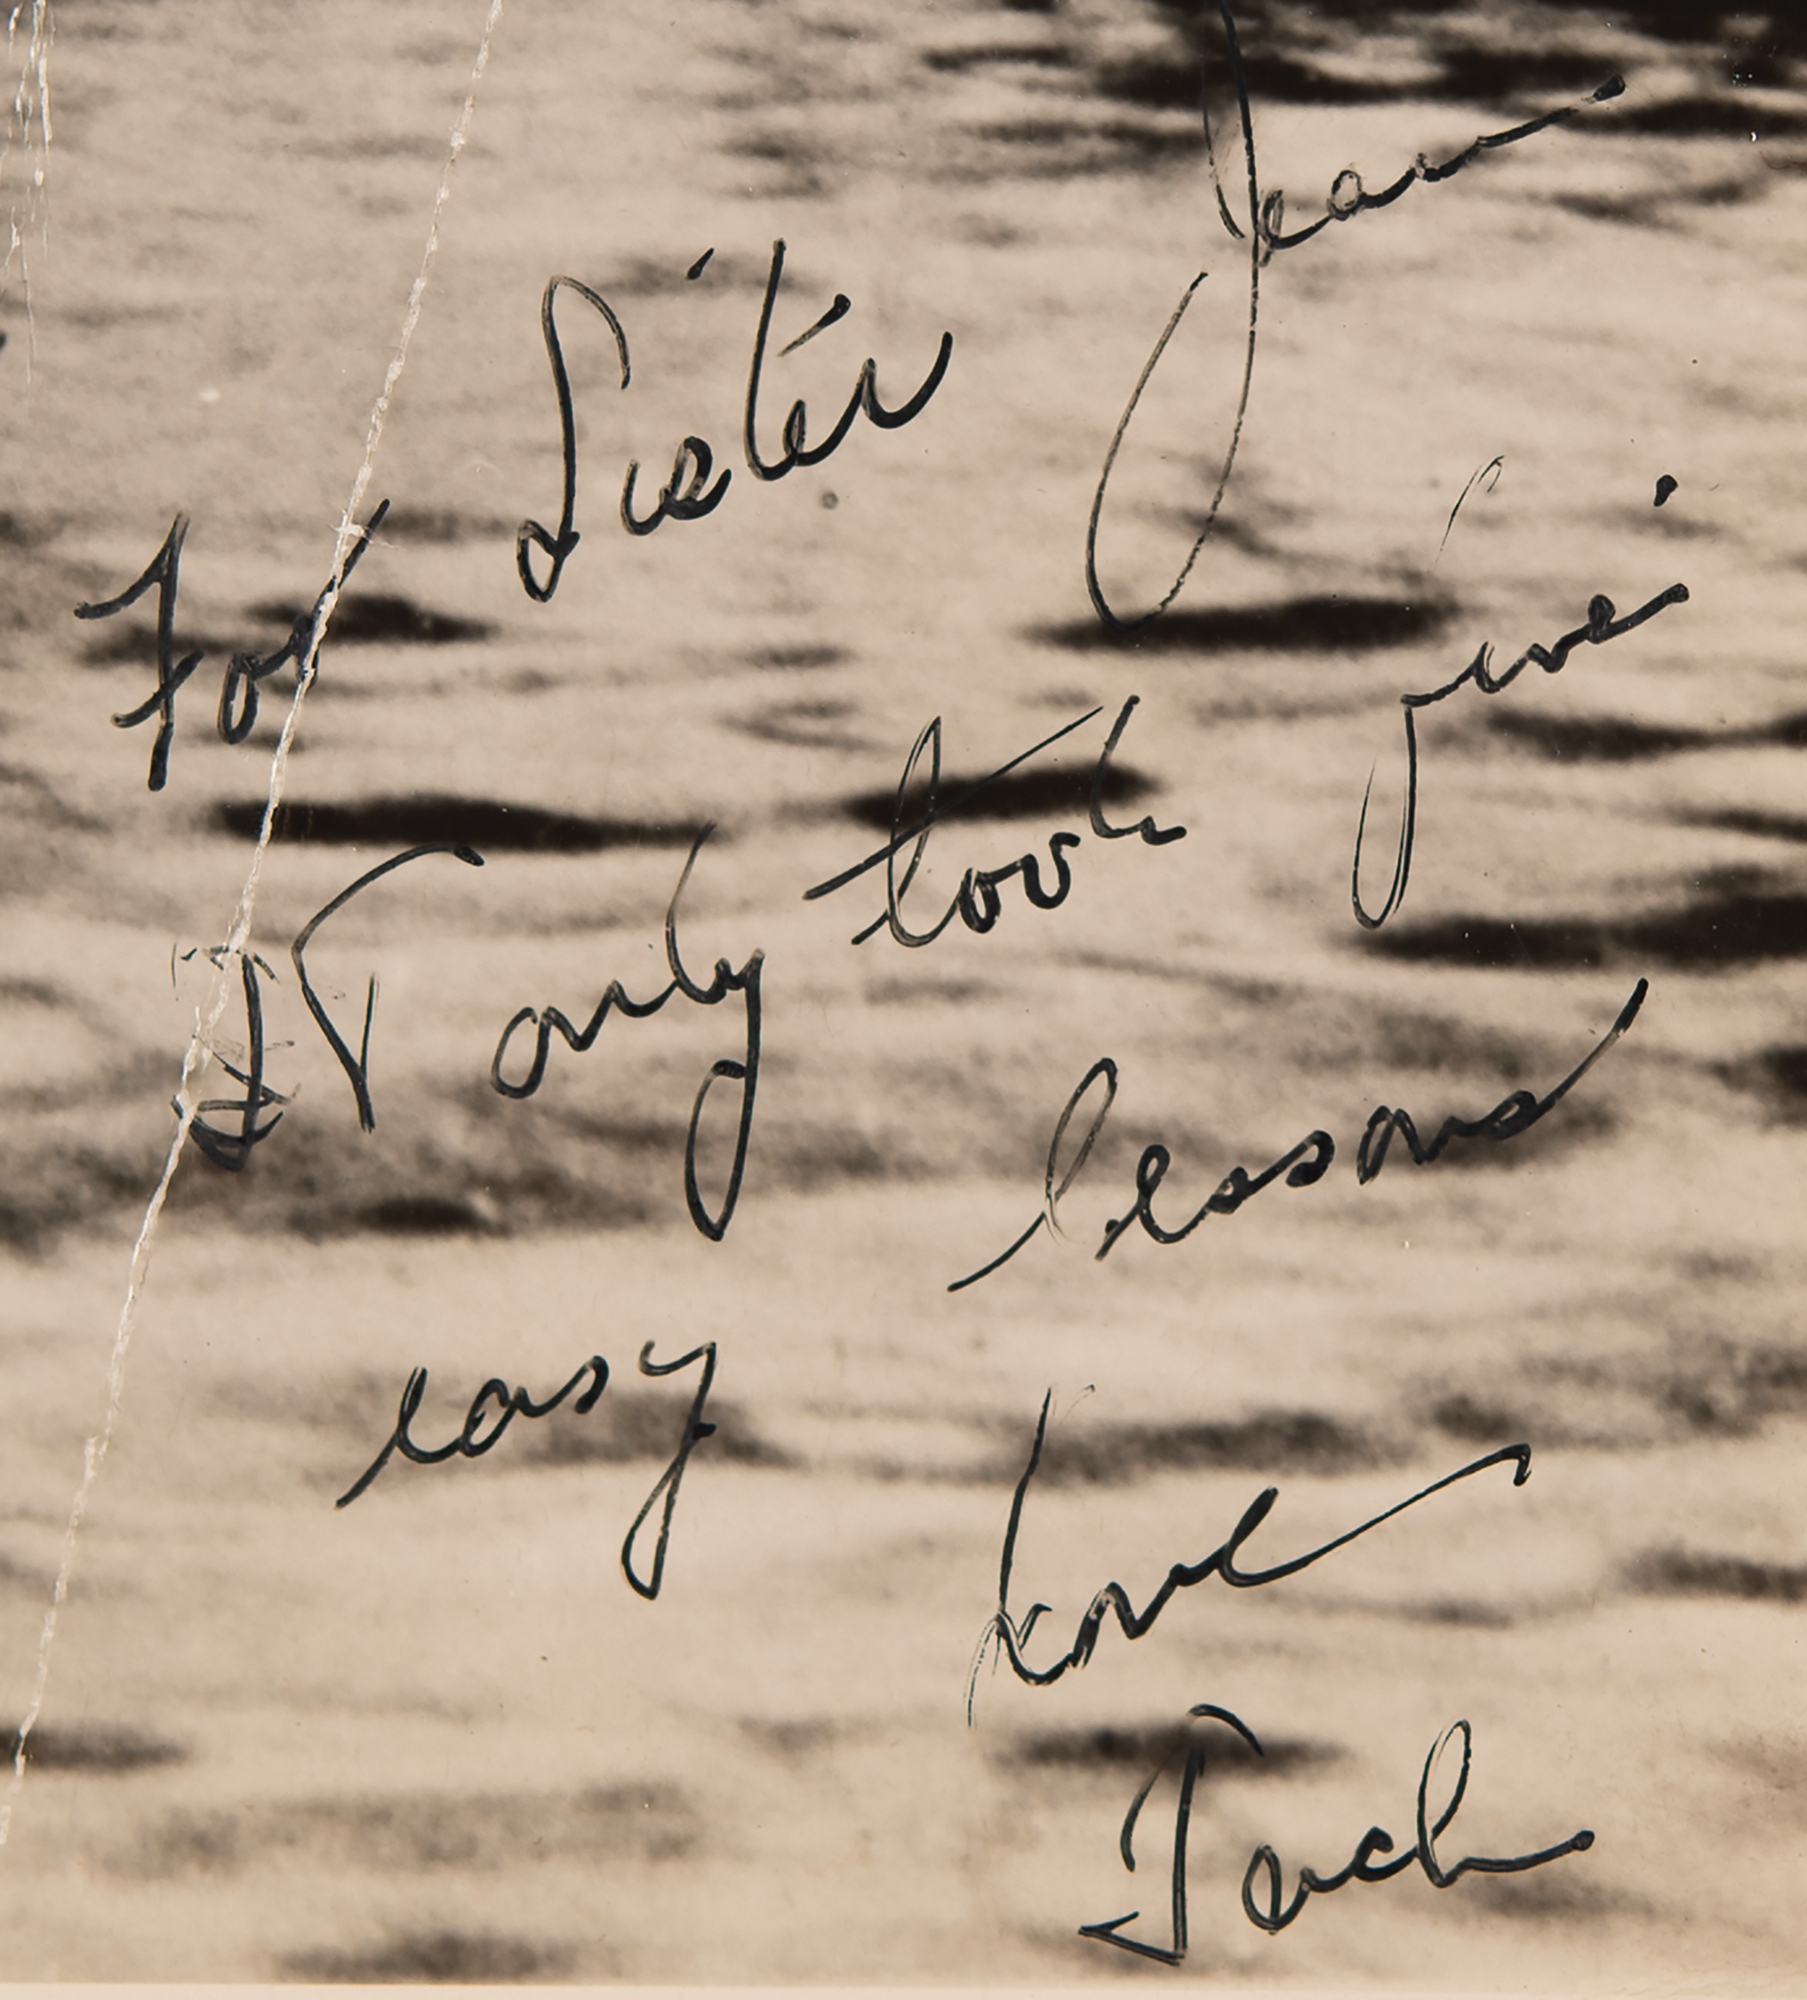 For Sister Jean
IT only took five
easy lessons
Love
Jack